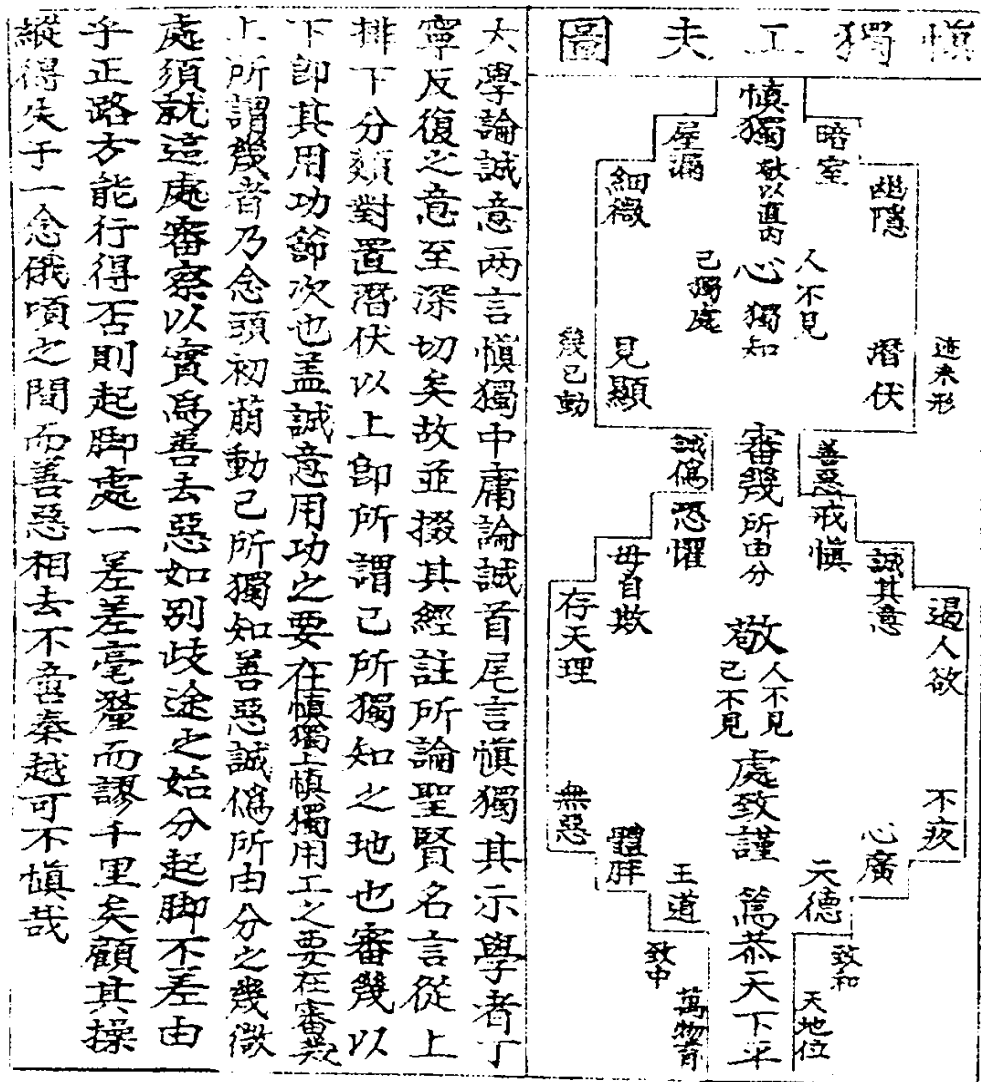 慎獨工夫圖
慎獨敬以直內
暗室
屋漏
幽隱
細微
人不見
心獨知
己獨處
潛伏
見顯
迹未形
幾已動
審幾所由分
善惡戒慎
誠僞恐懼
誠其意
毋自欺
遏人欲
存天理
敬人不見己不見處致謹
不疚
無惡
心廣
體胖
天德
王道
篤恭天下平
致和
致中
天地位
萬物育
大學論誠意两言慎獨中庸論誠首尾言慎獨其示學者丁
寧反復之意至深切矣故並掇其經註所論聖賢名言從上
排下分類對置潛伏以上卽所謂己所獨知之地也審幾以
下卽其用功節次也盖誠意用功之要在慎獨上慎獨用工之要在審幾
上所謂幾者乃念頭初萠動己所獨知善惡誠僞所由分之幾微
處須就這處審察以實爲善去惡如別歧途之始分起脚不差由
乎正路方能行得否則起脚處一差差毫釐而謬千里矣顧其操
縱得失于一念俄頃之間而善惡相去不啻秦越可不慎哉